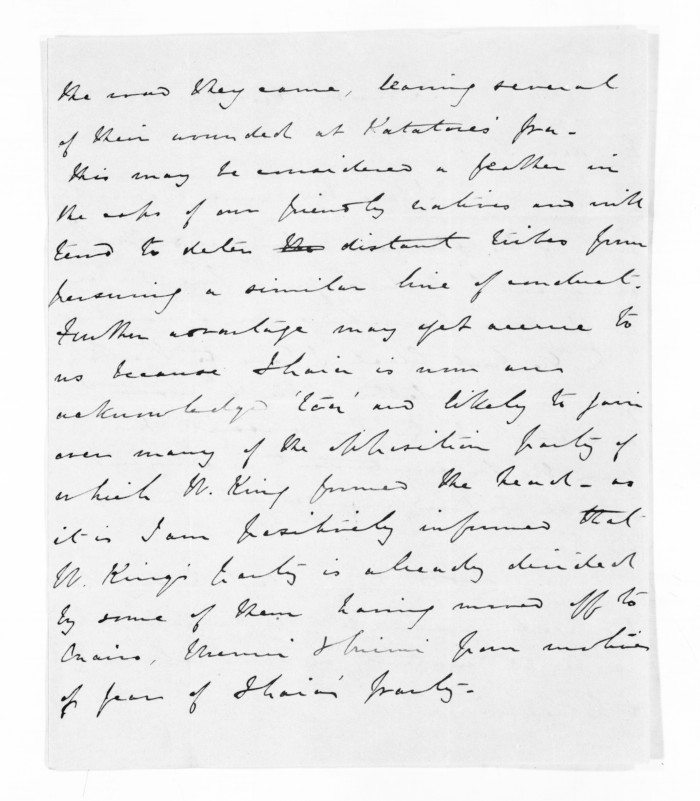 the road they came, leaving several
of their wounded at Katatore's pa -
This may be considered a feather in
the caps of our friendly natives and will
tend to deter the distant tribes from
pursuing a similar line of conduct.
Further advantage may yet accrue to
us because Ihaia is now an
acknowledged 'toa' and likely to join
over many of the opposition party of
which W. King formed the head - as
it is I am positively informed that
W. King's party is already divided
by some of them having moved off to
from motives
of fear of Ihaia's party -